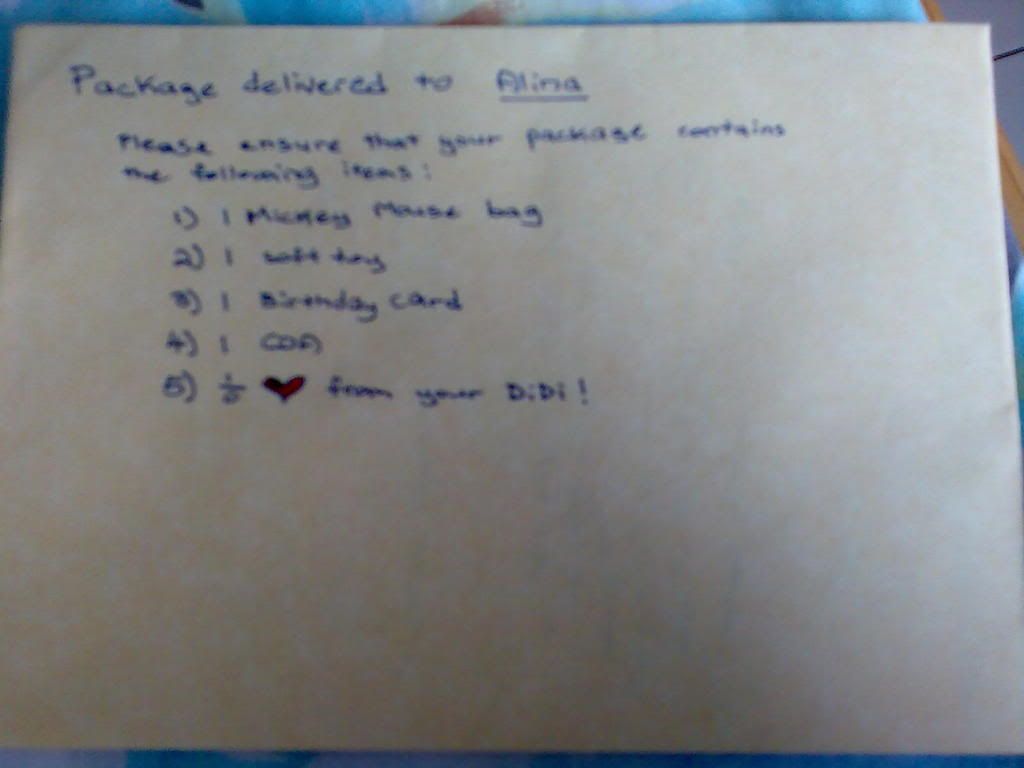 Package delivered to Alina
Please ensure that your package contains
the following items:
1) 1 Mickey Mouse bag
2) 1 soft toy
3) 1 Birthday card
4) 1
5) ❤ from your DiDi!